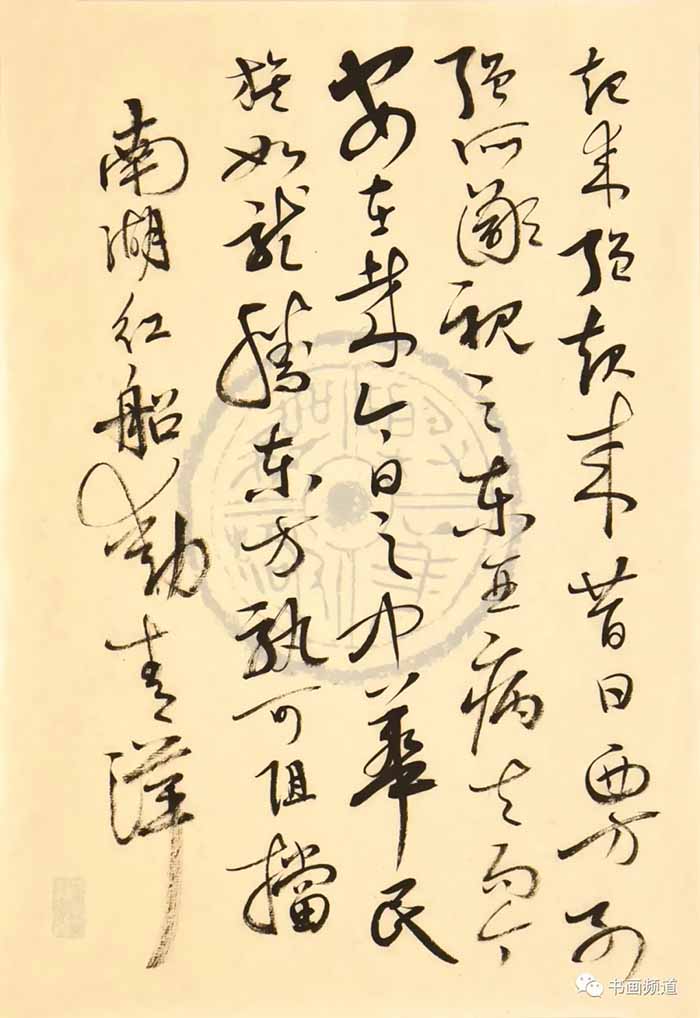 起来强起来昔日西方列
强所鄙视之东亚病夫而今
安在哉今日之中华民
族如龙腾东方孰可阻挡
南湖红船
书画频道